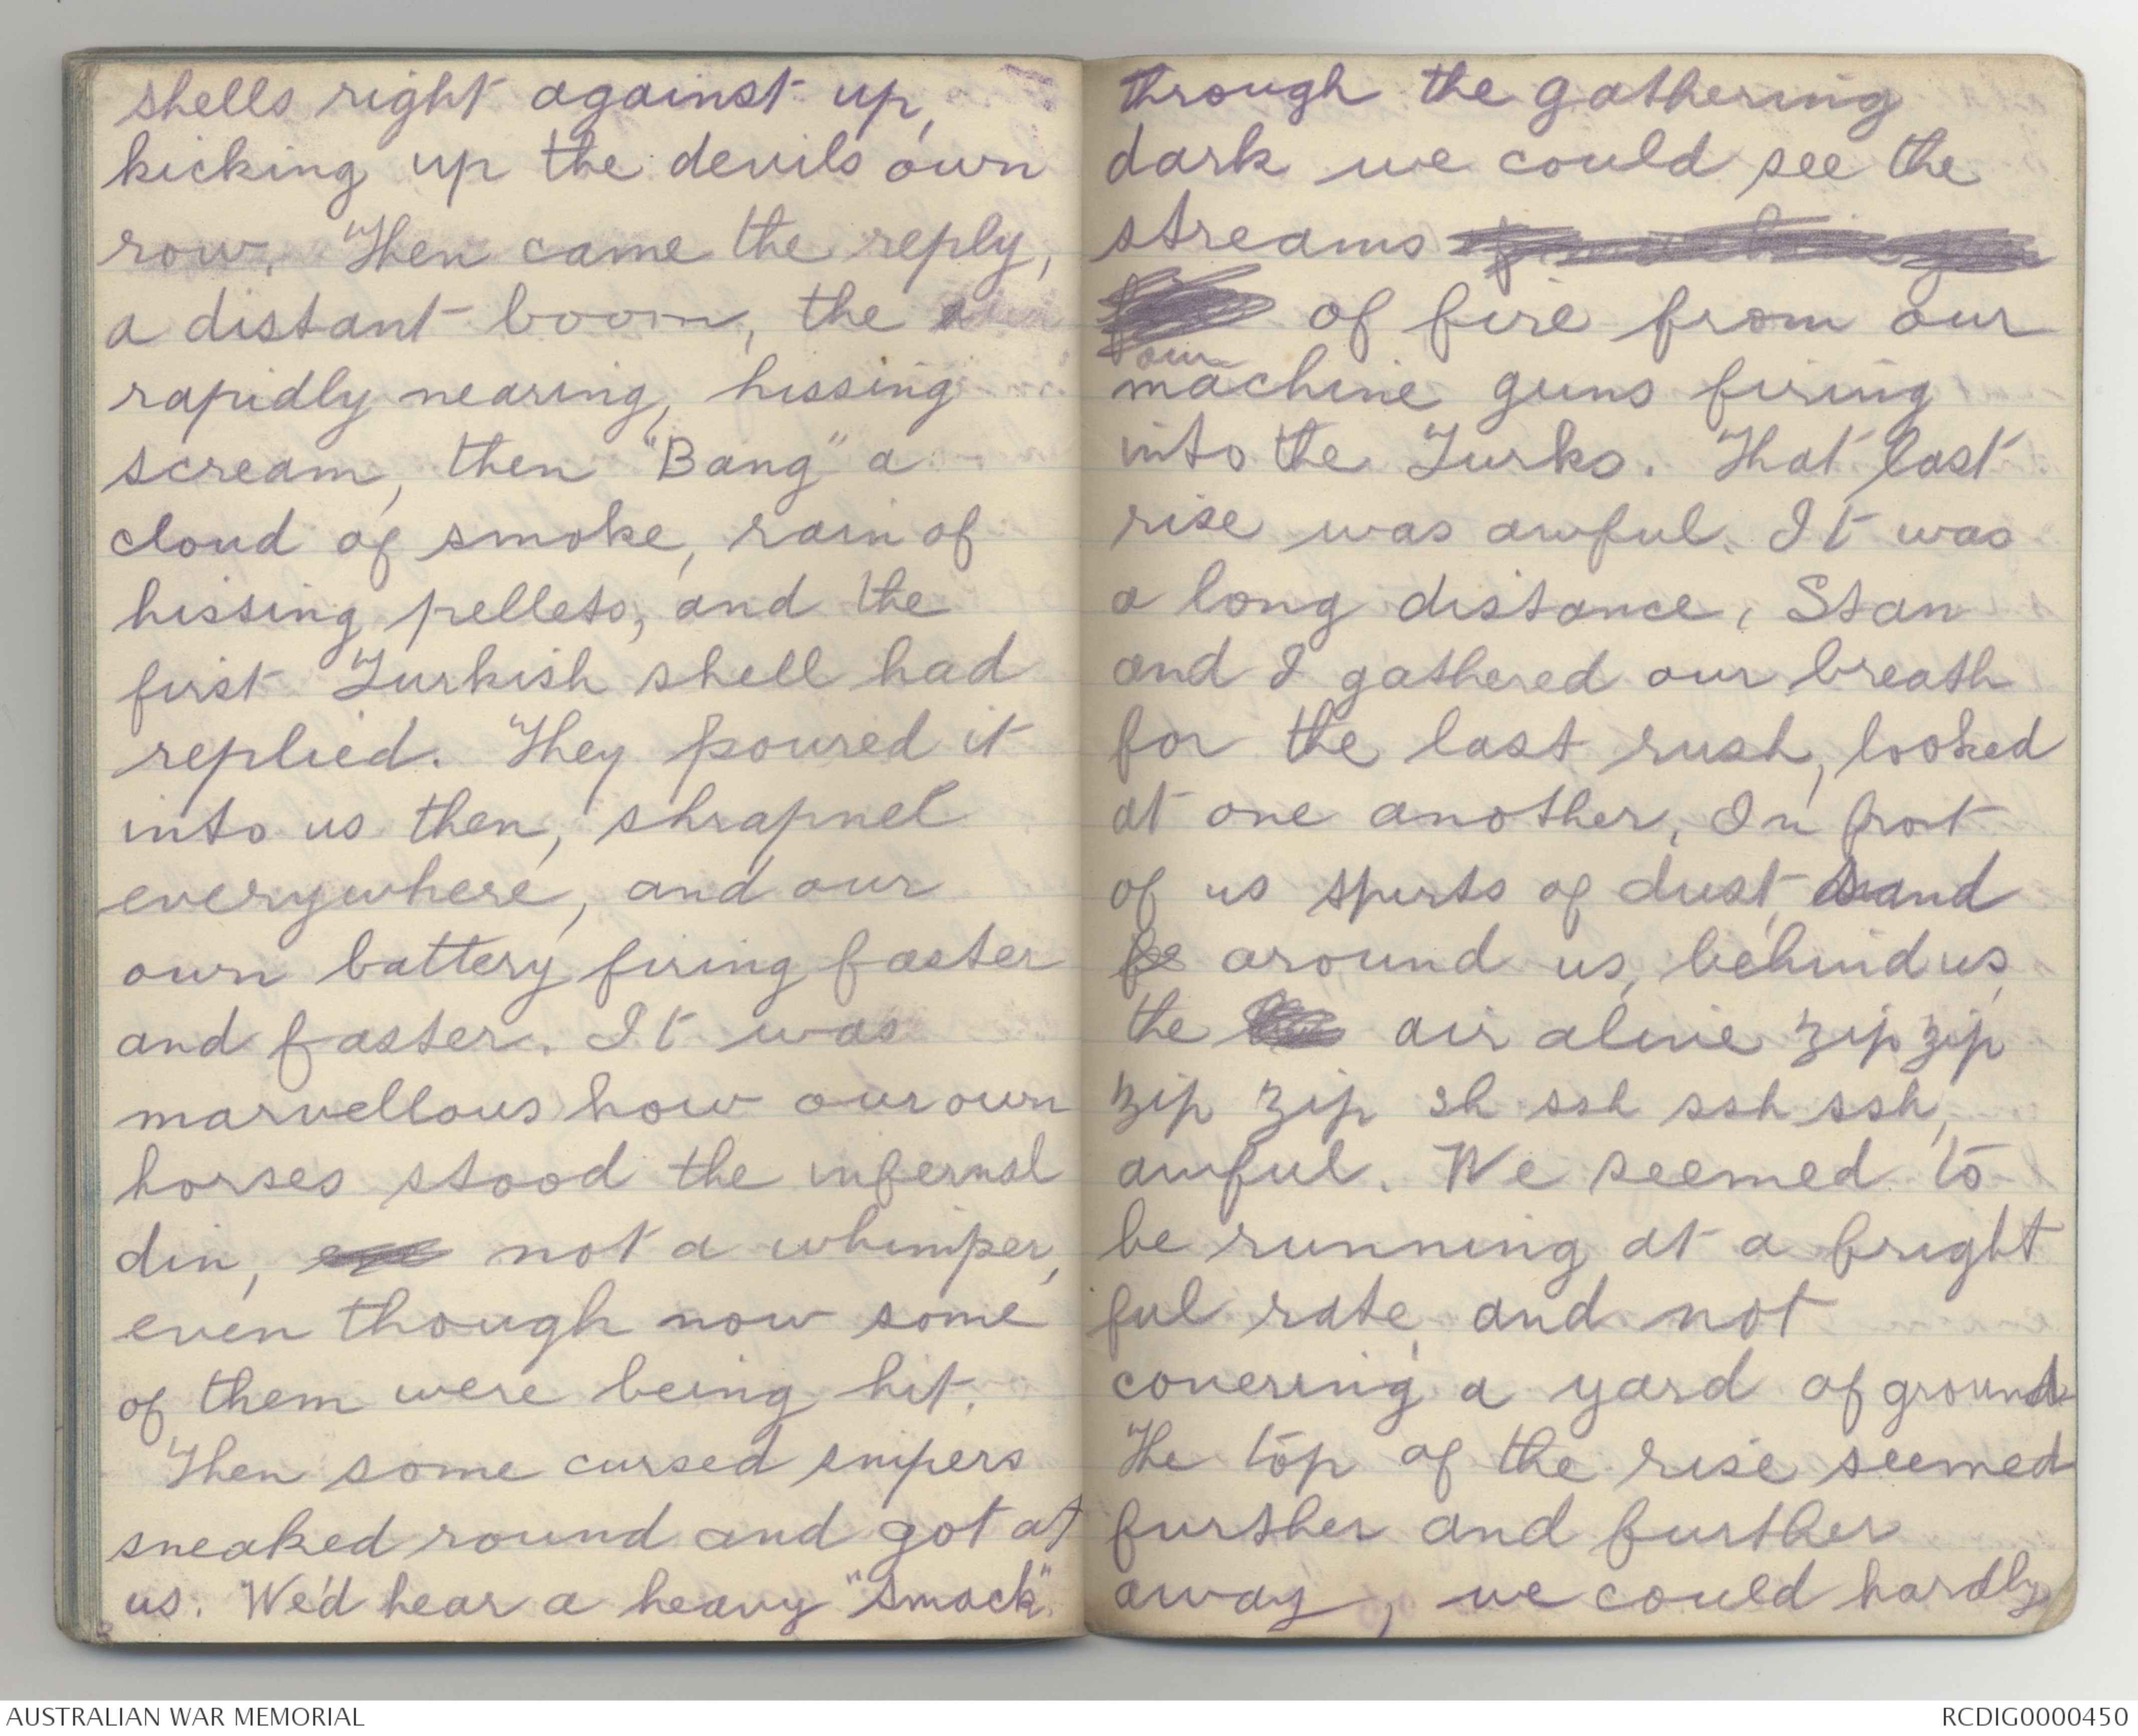 shells right against up,
kicking up the devils own
row. Then came the reply,
a distant boom, the
rapidly nearing, hissing
scream, then "Bang" a
cloud of smoke, rain of
hissing pellets, and the
first Turkish shell had
replied. They poured it
into us then, shrapnel
everywhere, and our
own battery firing faster
and faster. It was
marvellous how our own
horses stood the infernal
din, not a whimper,
even though now some
of them were being hit.
Then some cursed snipers
sneaked round and got at
us. We'd hear a heavy "smack"
through the gathering
dark we could see the
streams
of fire from our
our
machine guns firing
into the Turks. That last
rise was awful. It was
a long distance, Stan
and I gathered our breath
for the last rush, looked
at one another, In front
of us spurts of dust, and
around us, behind us,
the air alive zip zip
zip zip sh ssh ssh ssh,
awful. We seemed to
be running at a fright
ful rate, and not
covering a yard of ground
The top of the rise seemed
further and further
away, we could hardly
AUSTRALIAN WAR MEMORIAL
RCDIG0000450